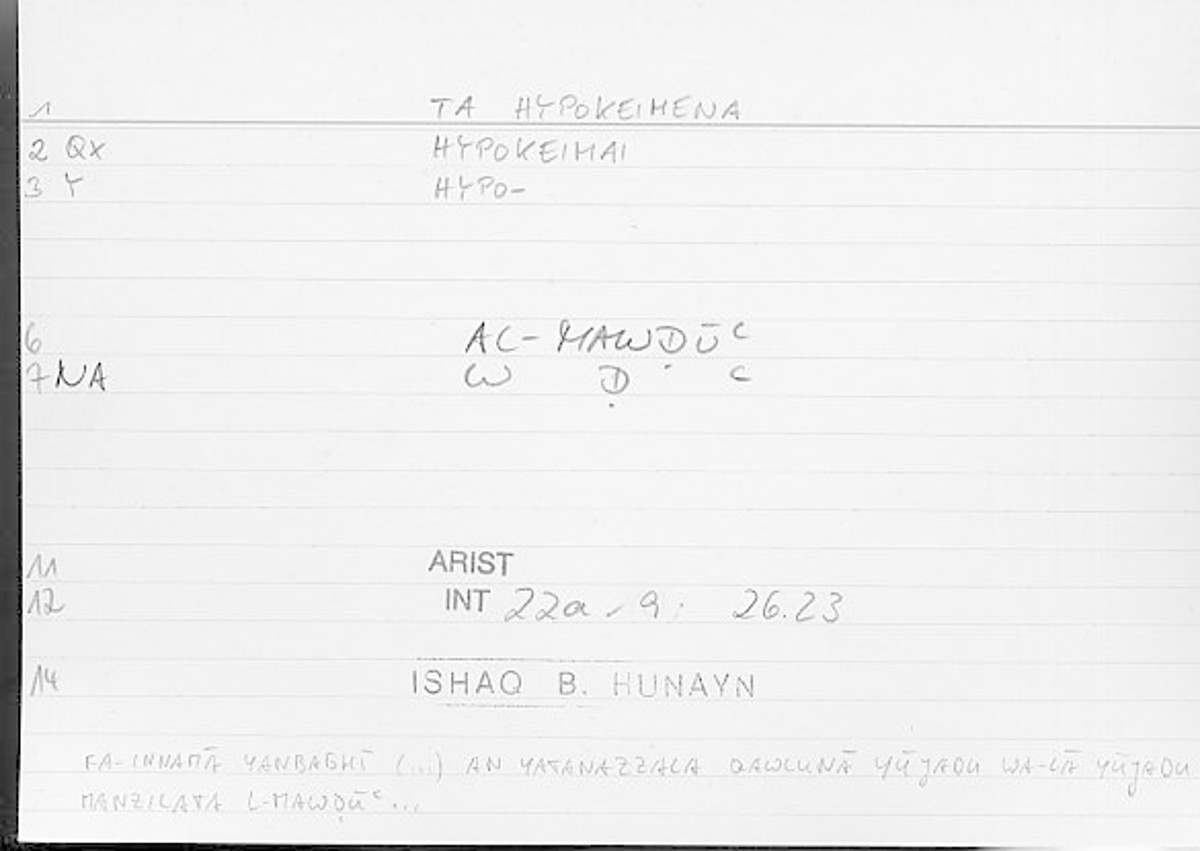 1 TA HYPOKEIMENA
2 QX HYPOKEIMAI
3 Y HYPO-
6 AL-MAWḌŪʿ
7 NA W Ḍ ʿ
11 ARIST
12 INT 22a, 9: 26.23
14 ISHAQ B. HUNAYN
FA-INNAMĀ YANBAGHĪ (...) AN YATANAZZALA QAWLUNĀ YŪJADU WA-LĀ YŪJADU
MANZILATA L-MAWḌŪʿ...